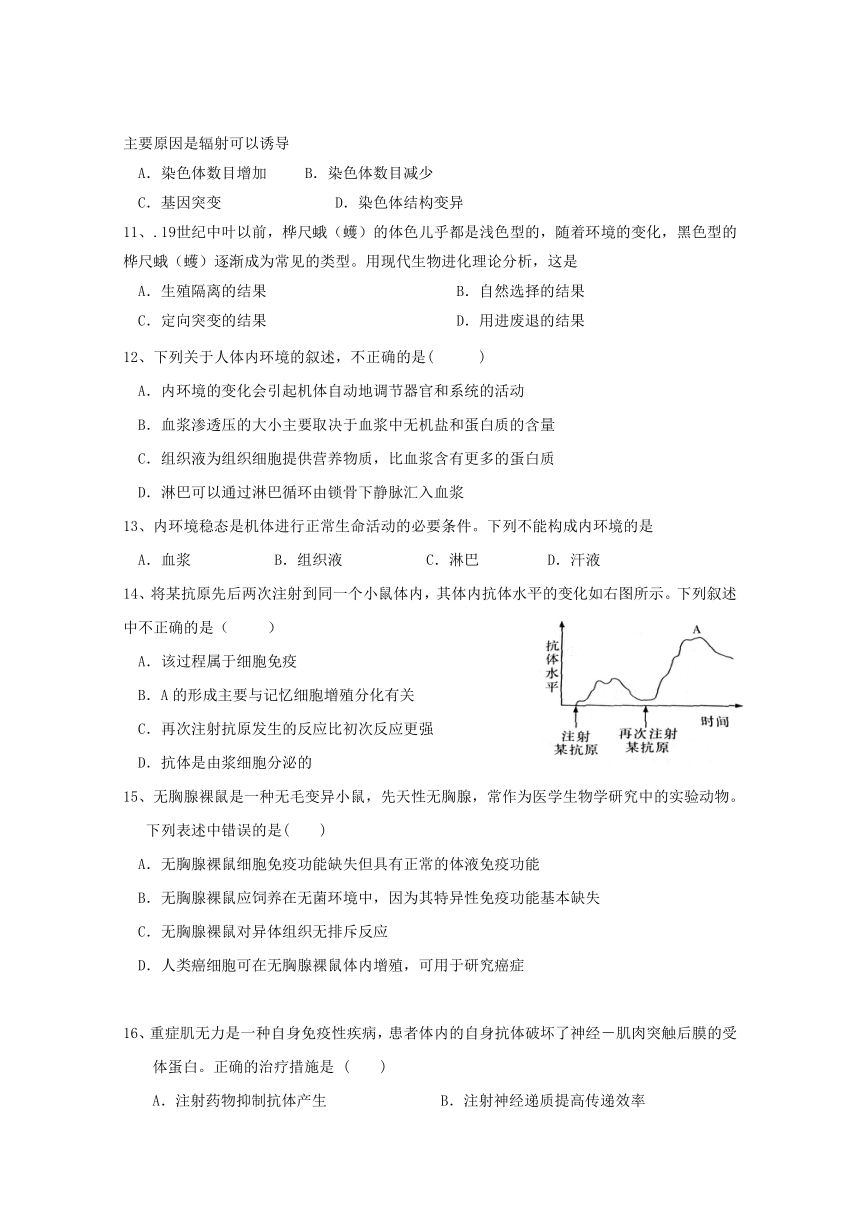 主要原因是辐射可以诱导
A．染色体数目增加 B．染色体数目减少
C．基因突变 D．染色体结构变异
11、.19世纪中叶以前，桦尺蛾（蠖）的体色几乎都是浅色型的，随着环境的变化，黑色型的
桦尺蛾（蠖）逐渐成为常见的类型。用现代生物进化理论分析，这是
A．生殖隔离的结果 B．自然选择的结果
C．定向突变的结果 D．用进废退的结果
12、下列关于人体内环境的叙述，不正确的是( )
A．内环境的变化会引起机体自动地调节器官和系统的活动
B．血浆渗透压的大小主要取决于血浆中无机盐和蛋白质的含量
C．组织液为组织细胞提供营养物质，比血浆含有更多的蛋白质
D．淋巴可以通过淋巴循环由锁骨下静脉汇入血浆
13、内环境稳态是机体进行正常生命活动的必要条件。下列不能构成内环境的是
A．血浆 B．组织液 C．淋巴 D．汗液
14、将某抗原先后两次注射到同一个小鼠体内，其体内抗体水平的变化如右图所示。下列叙述
中不正确的是（ ）
A．该过程属于细胞免疫
B．A 的形成主要与记忆细胞增殖分化有关
C．再次注射抗原发生的反应比初次反应更强
D．抗体是由浆细胞分泌的
抗体水平
A
时间
注射
某抗原
再次注射
某抗原
15、无胸腺裸鼠是一种无毛变异小鼠，先天性无胸腺，常作为医学生物学研究中的实验动物。
下列表述中错误的是( )
A．无胸腺裸鼠细胞免疫功能缺失但具有正常的体液免疫功能
B．无胸腺裸鼠应饲养在无菌环境中，因为其特异性免疫功能基本缺失
C．无胸腺裸鼠对异体组织无排斥反应
D．人类癌细胞可在无胸腺裸鼠体内增殖，可用于研究癌症
16、重症肌无力是一种自身免疫性疾病，患者体内的自身抗体破坏了神经－肌肉突触后膜的受
体蛋白。正确的治疗措施是 ( )
A．注射药物抑制抗体产生 B．注射神经递质提高传递效率